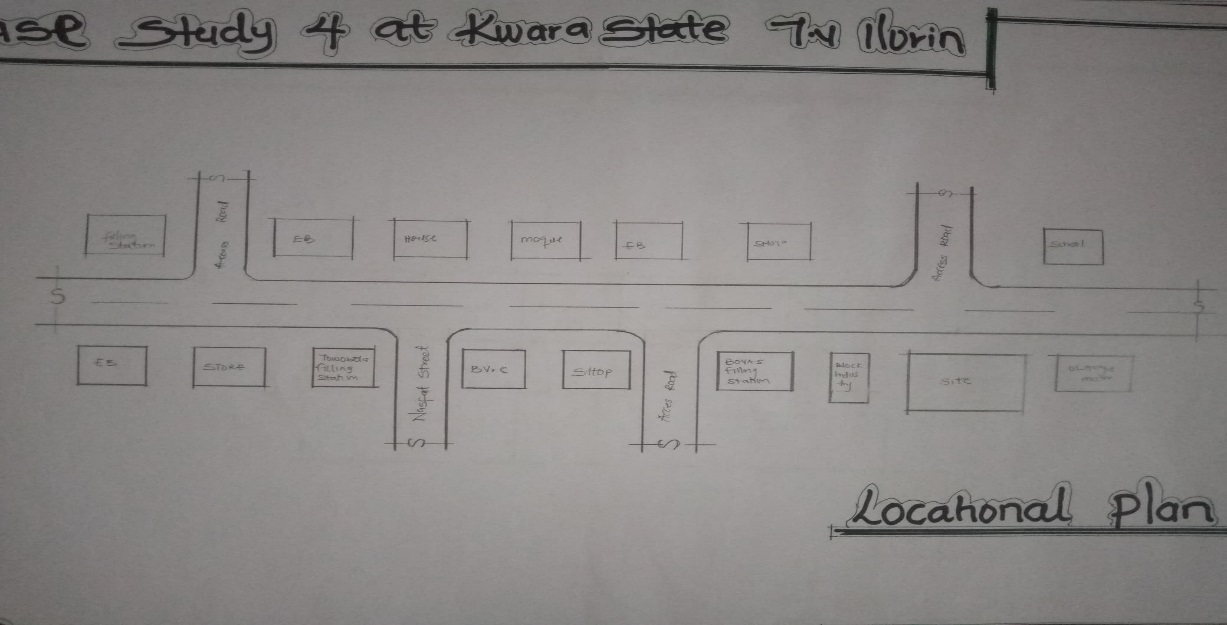 ase Study 4 at Kwara State T.V Ilorin
S
S
filling
Station
Access Road
EB
House
mosque
EB
Shop
Access Road
School
S
S
EB
STORE
filling
Station
Nasfat Street
S
B.V.C
Shop
Acces Road
S
filling
station
Block
Indus
try
Site
Locational Plan